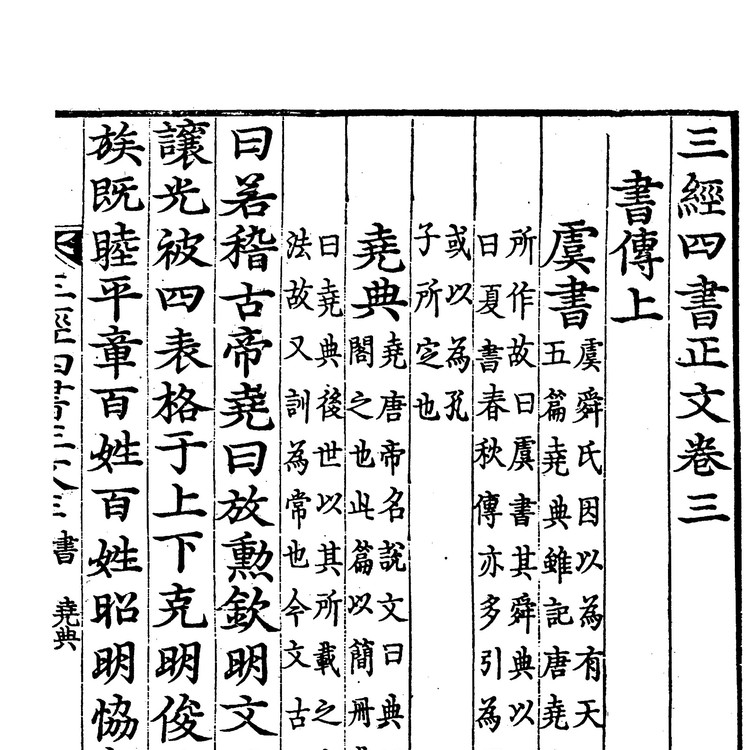 三經四書正文卷三
書傳上
虞書
虞舜氏因以為有天
五篇堯典雖記唐堯
所作故曰虞書其舜典以
曰夏書春秋傳亦多引為
或以為孔
子所定也
堯典
堯唐帝名說文曰典
閣之也此篇以簡冊
曰堯典後世以其所載之
法故又訓為常也今文古
曰若稽古帝堯曰放勳欽明文
讓光被四表格于上下克明俊
族既睦平章百姓百姓昭明協
三經四書正文三 書 堯典